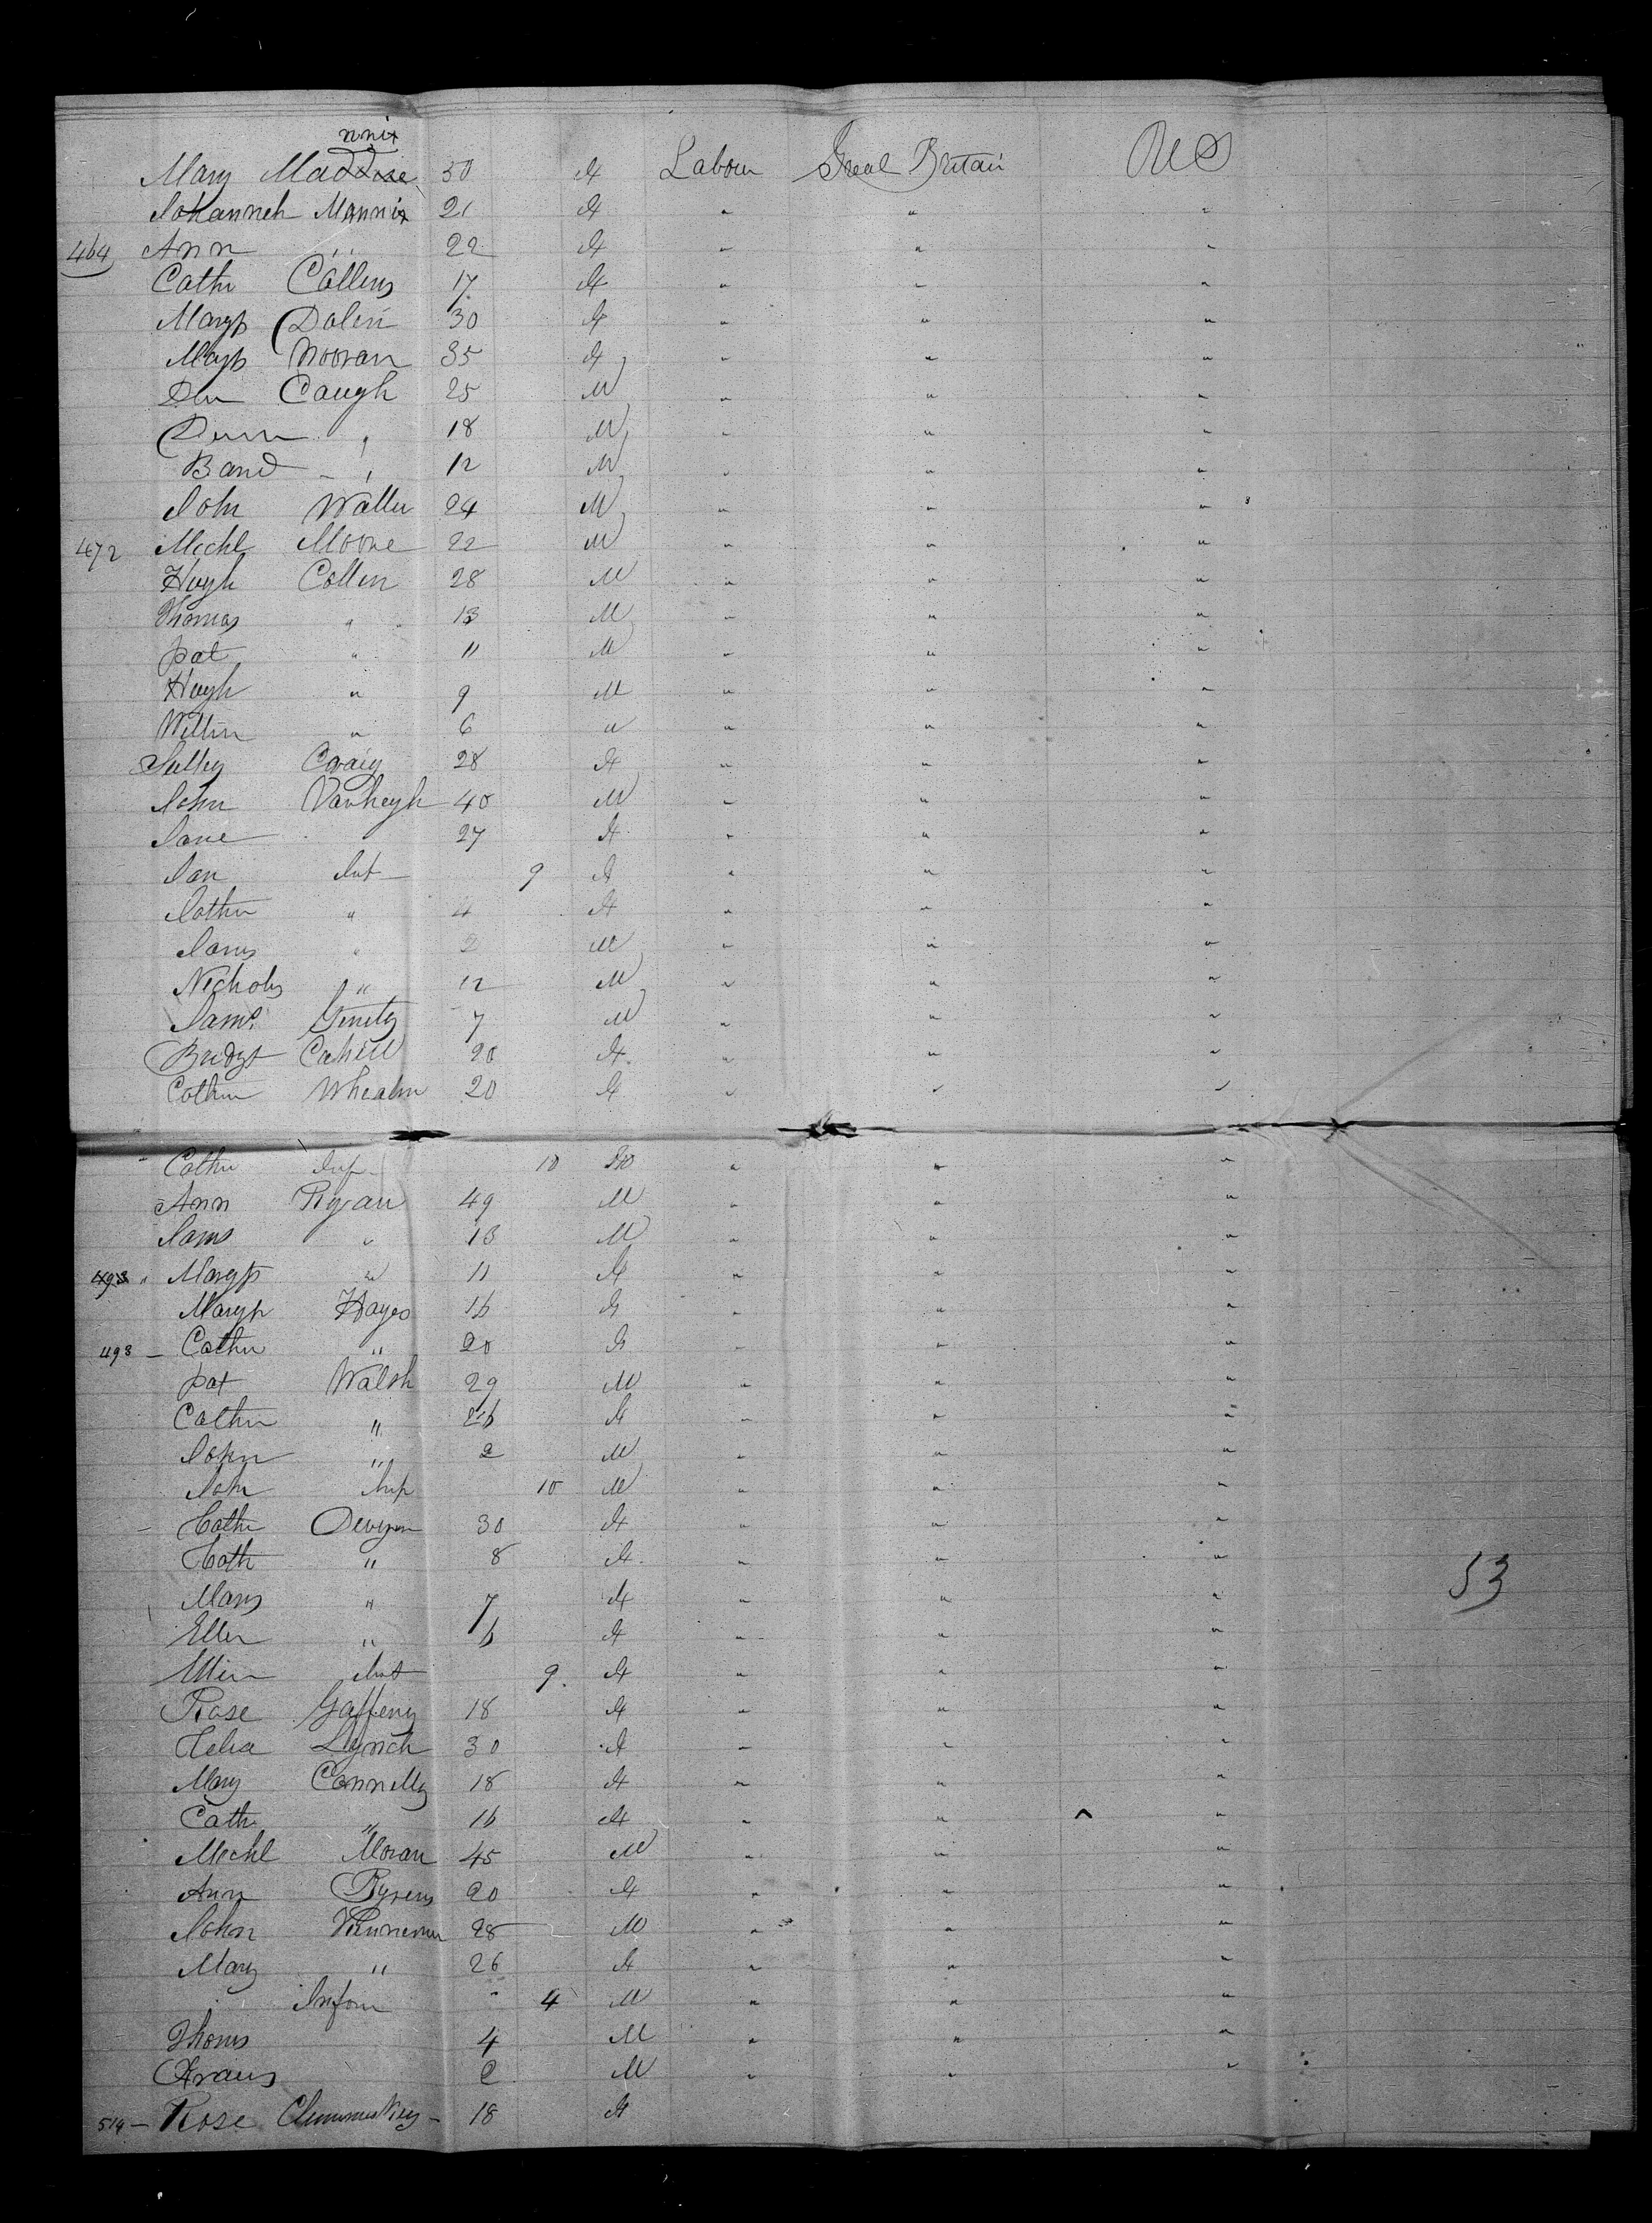 nnix
Mary Maddise 50 F Labour Great Britain US
Johannah Mannix 21 F " " "
464 Ann " 22 F " " "
Cathe Collins 17 F " " "
Margt Dolin 30 F " " "
Margt Nooran 35 F " " "
Caugh 25 M " " "
" 18 M " " "
" 12 M " " "
John Walter 24 M " " "
472 Michl Moore 22 M " " "
Hugh Collin 28 M " " "
Thomas " 13 M " " "
Pat " 11 M " " "
Hugh " 9 M " " "
" 6 " " " "
Salley Craig 28 F " " "
John 40 M " " "
Jane 27 F " " "
Jan Inft 9 F " " "
" 4 F " " "
James " 2 M " " "
Nicholas " 12 M " " "
7 M " " "
Bridgt Cahill 20 F " " "
Cathn Whealan 20 F " " "
Cathe Inf 10 " " "
Ann Ryan 49 M " " "
James " 13 M " " "
493 " Margt " 11 F " " "
Margt Hayes 16 F " " "
493 - Cathe " 20 F " " "
Pat Walsh 29 M " " "
Cathn " 26 F " " "
John " 2 M " " "
John Inf 10 M " " "
- Cathe 30 F " " "
Cath " 8 F " " "
Mary " 7 F " " "
Ellen " 6 F " " " 53
Inft 9 F " " "
Rose Gaffeny 18 F " " "
Lynch 30 F " " "
Mary Connelly 18 F " " "
Cath " 16 F " " ^ "
Michl Moran 45 M " " "
Ann Byrens 20 F " " "
John 28 M " " "
Mary " 26 F " " "
Infan " 4 M " " "
Thoms 4 M " " "
Frans 2 M " " "
519 - Rose - 18 F